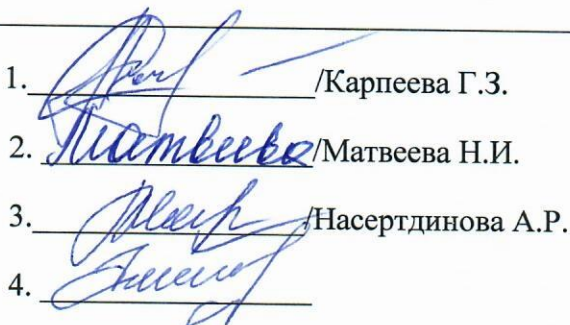 1. /Карпеева Г.З.
2. Матвеева/Матвеева Н.И.
3. /Насертдинова А.Р.
4.